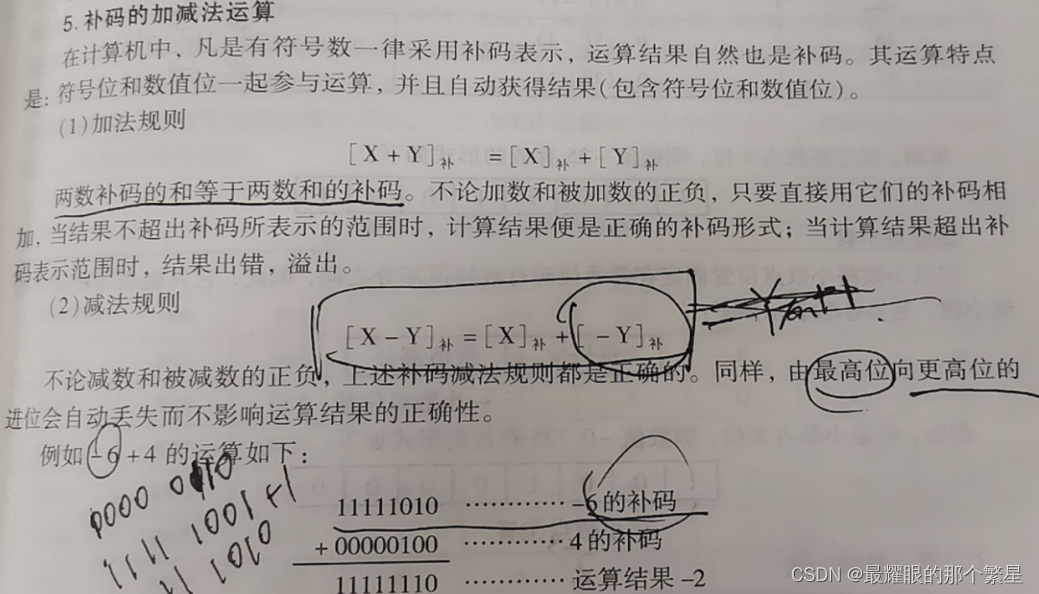 5.补码的加减法运算
在计算机中，凡是有符号数一律采用补码表示，运算结果自然也是补码。其运算特点
是：符号位和数值位一起参与运算，并且自动获得结果（包含符号位和数值位）。
（1）加法规则
［X＋Y］补 ＝［X］补＋［Y］补
两数补码的和等于两数和的补码。不论加数和被加数的正负，只要直接用它们的补码相
加，当结果不超出补码所表示的范围时，计算结果便是正确的补码形式；当计算结果超出补
码表示范围时，结果出错，溢出。
（2）减法规则
［X－Y］补＝［X］补＋［－Y］补
不论减数和被减数的正负，上述补码减法规则都是正确的。同样，由最高位向更高位的
进位会自动丢失而不影响运算结果的正确性。
例如－6＋4的运算如下：
0000 0110
1111 1001 +1
11 1010
11111010 ………… －6的补码
＋00000100 ………… 4的补码
11111110 ………… 运算结果－2
CSDN @最耀眼的那个繁星